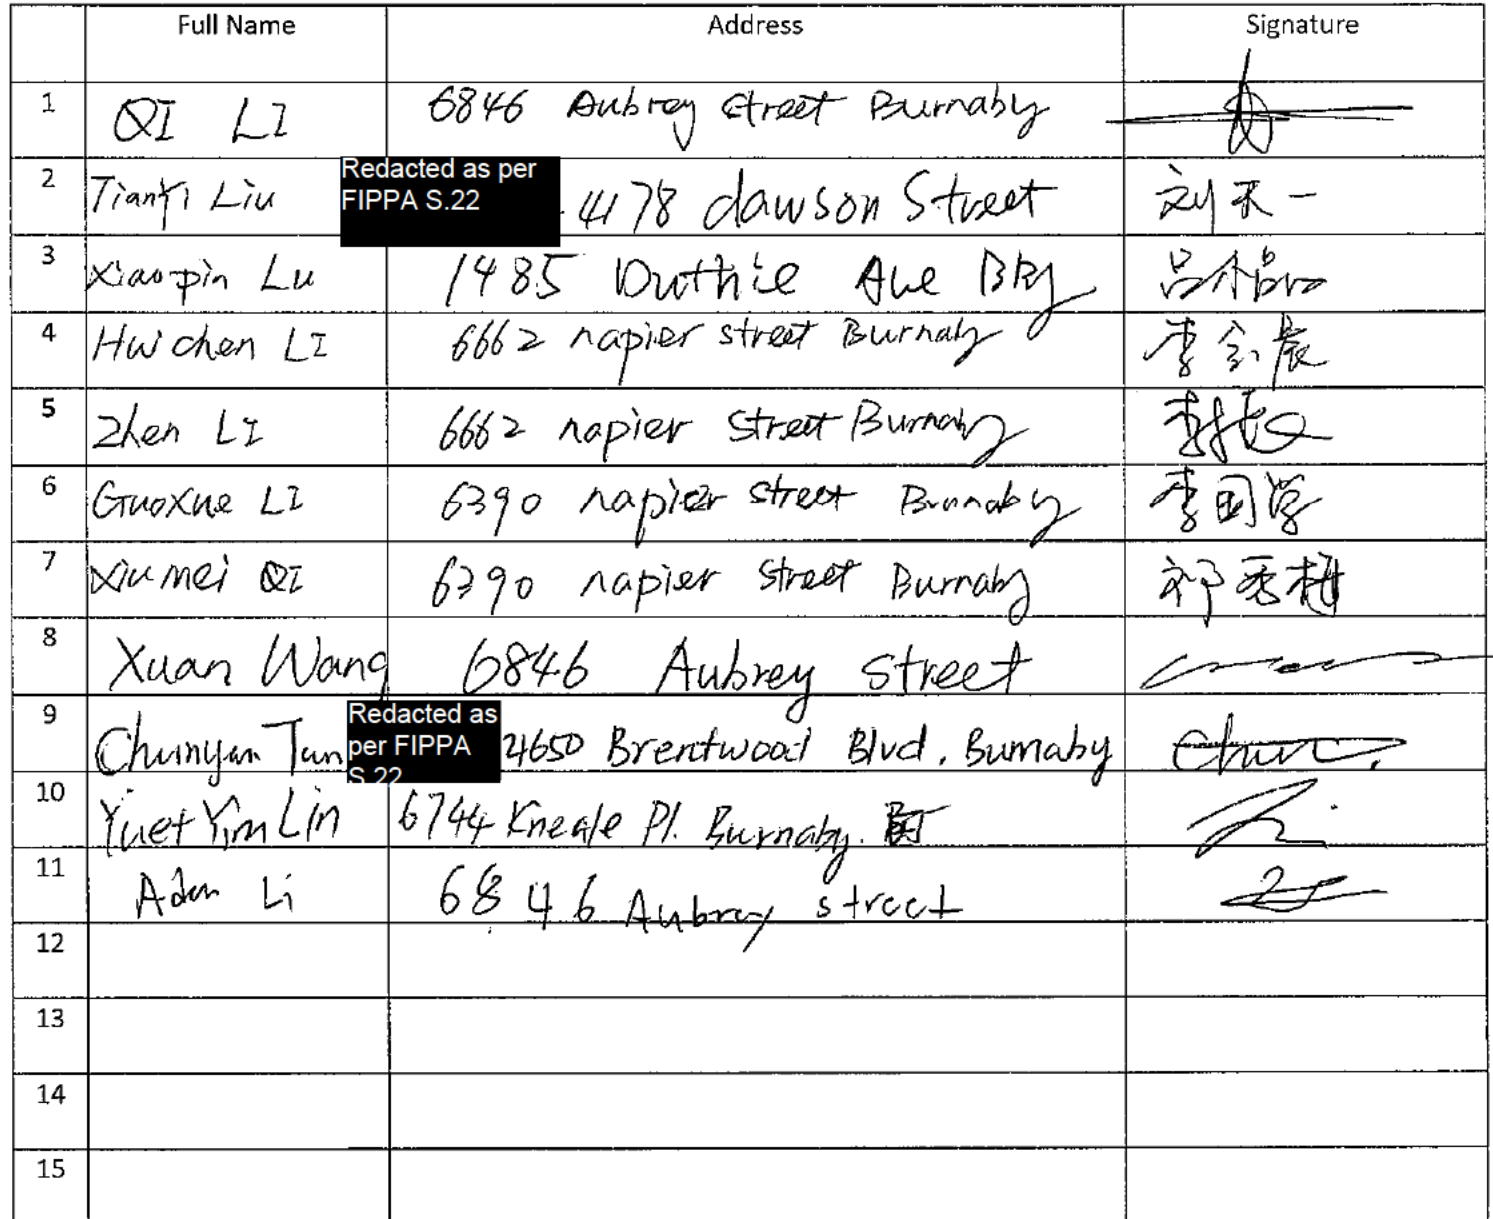 Full Name Address Signature
1 QI LI 6846 Aubrey Street Burnaby
2 Tianyi Liu Redacted as per FIPPA S.22 4178 dawson Street 刘天一
3 Xiaopin Lu 1485 Duthie Ave BBY 吕小品
4 Huichen LI 6662 napier street Burnaby 李会晨
5 Zhen LI 6662 napier street Burnaby 李振
6 GuoXue LI 6390 napier street Burnaby 李国学
7 Xiumei QI 6390 napier street Burnaby 祁秀梅
8 Xuan Wang 6846 Aubrey street
9 Chunyan Tan Redacted as per FIPPA S.22 4650 Brentwood Blvd. Burnaby
10 Yuet Yim Lin 6744 Kneale Pl. Burnaby.
11 Adam Li 6846 Aubrey street
12
13
14
15